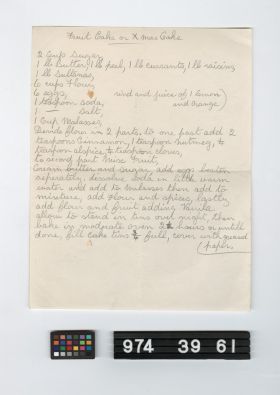 Fruit Cake or Xmas Cake
2 Cups Sugar,
1 lb Butter, 1 lb peel, 1 lb currants, 1 lb raisins
1 lb Sultanas,
6 cups Flour,
6 eggs, rind and juice of 1 lemon
1 teaspoon soda, and orange
" " Salt,
1 Cup Molasses,
Divide flour in 2 parts, to one part add 2
teaspoons Cinnamon, 1 teaspoon nutmeg, ½
teaspoon alspice, ½ teaspoon cloves,
to second part mix fruit,
Cream butter and sugar, add eggs beaten
seperately, dissolve soda in little warm
water and add to molasses then add to
mixture, add flour and spices, lastly
add flour and fruit adding vanilla.
allow to stand in tins over night, then
bake in moderate oven hours or untill
done, fill cake tins full, cover with greased
paper.
974 39 61